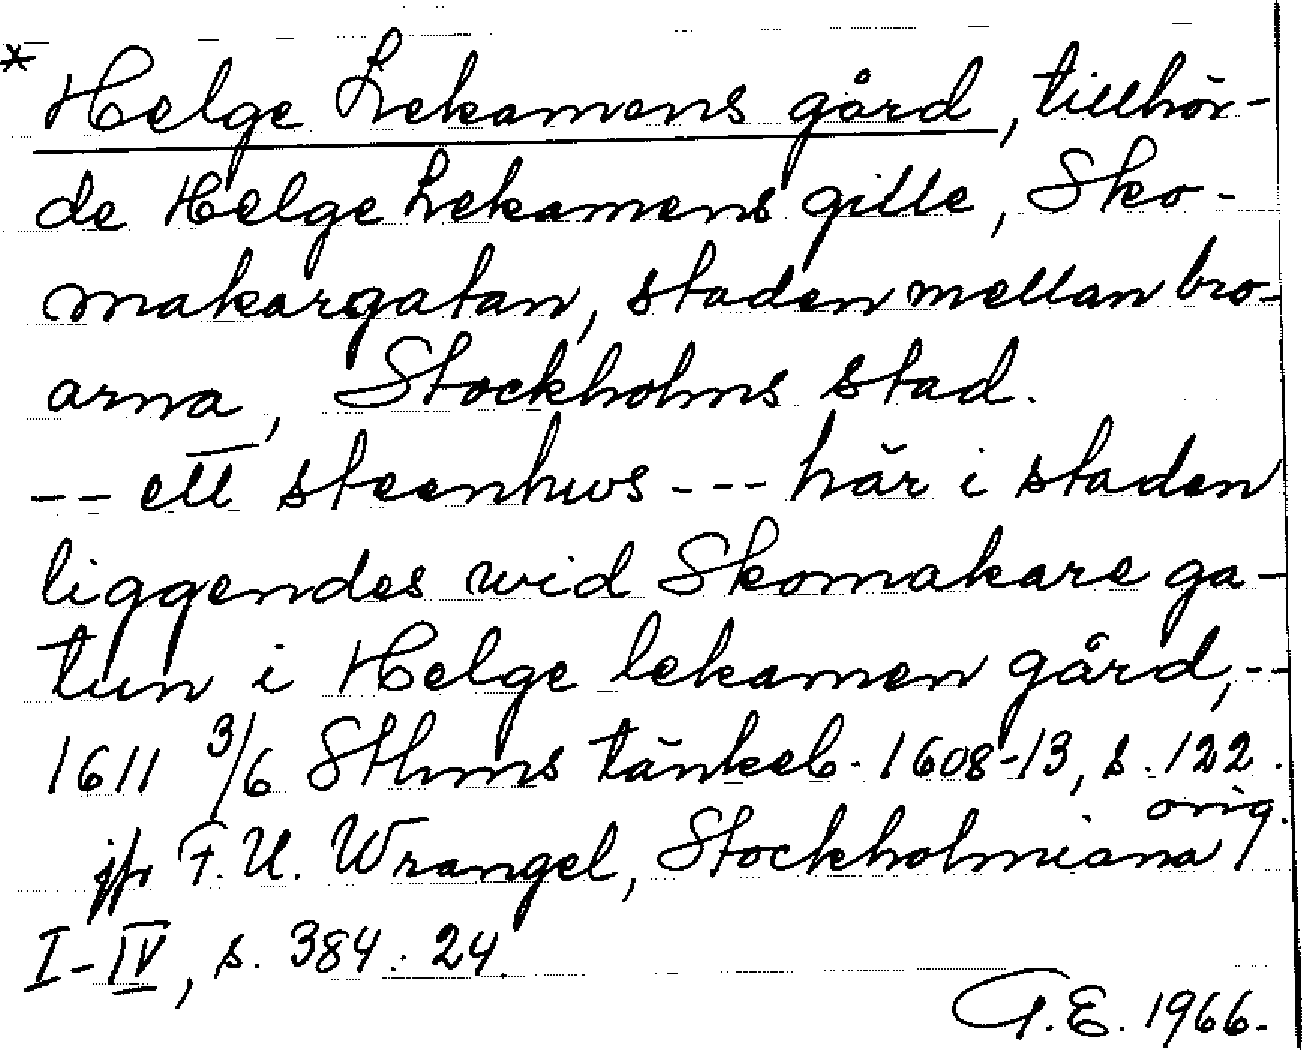 * Helge Lekamens gård, tillhör-
de Helge Lekamens gille, Sko-
makargatan, staden mellan bro-
arna, Stockholms stad.
-- ett steenhws --- här i staden
liggendes wid Skomakare ga-
tun i Helge lekamen gård, --
1611 3/6 Sthms tänkeb. 1608-13, s. 122.
orig.
jfr F. U. Wrangel, Stockholmiana
I-IV, s. 384: 24.
G.E. 1966.